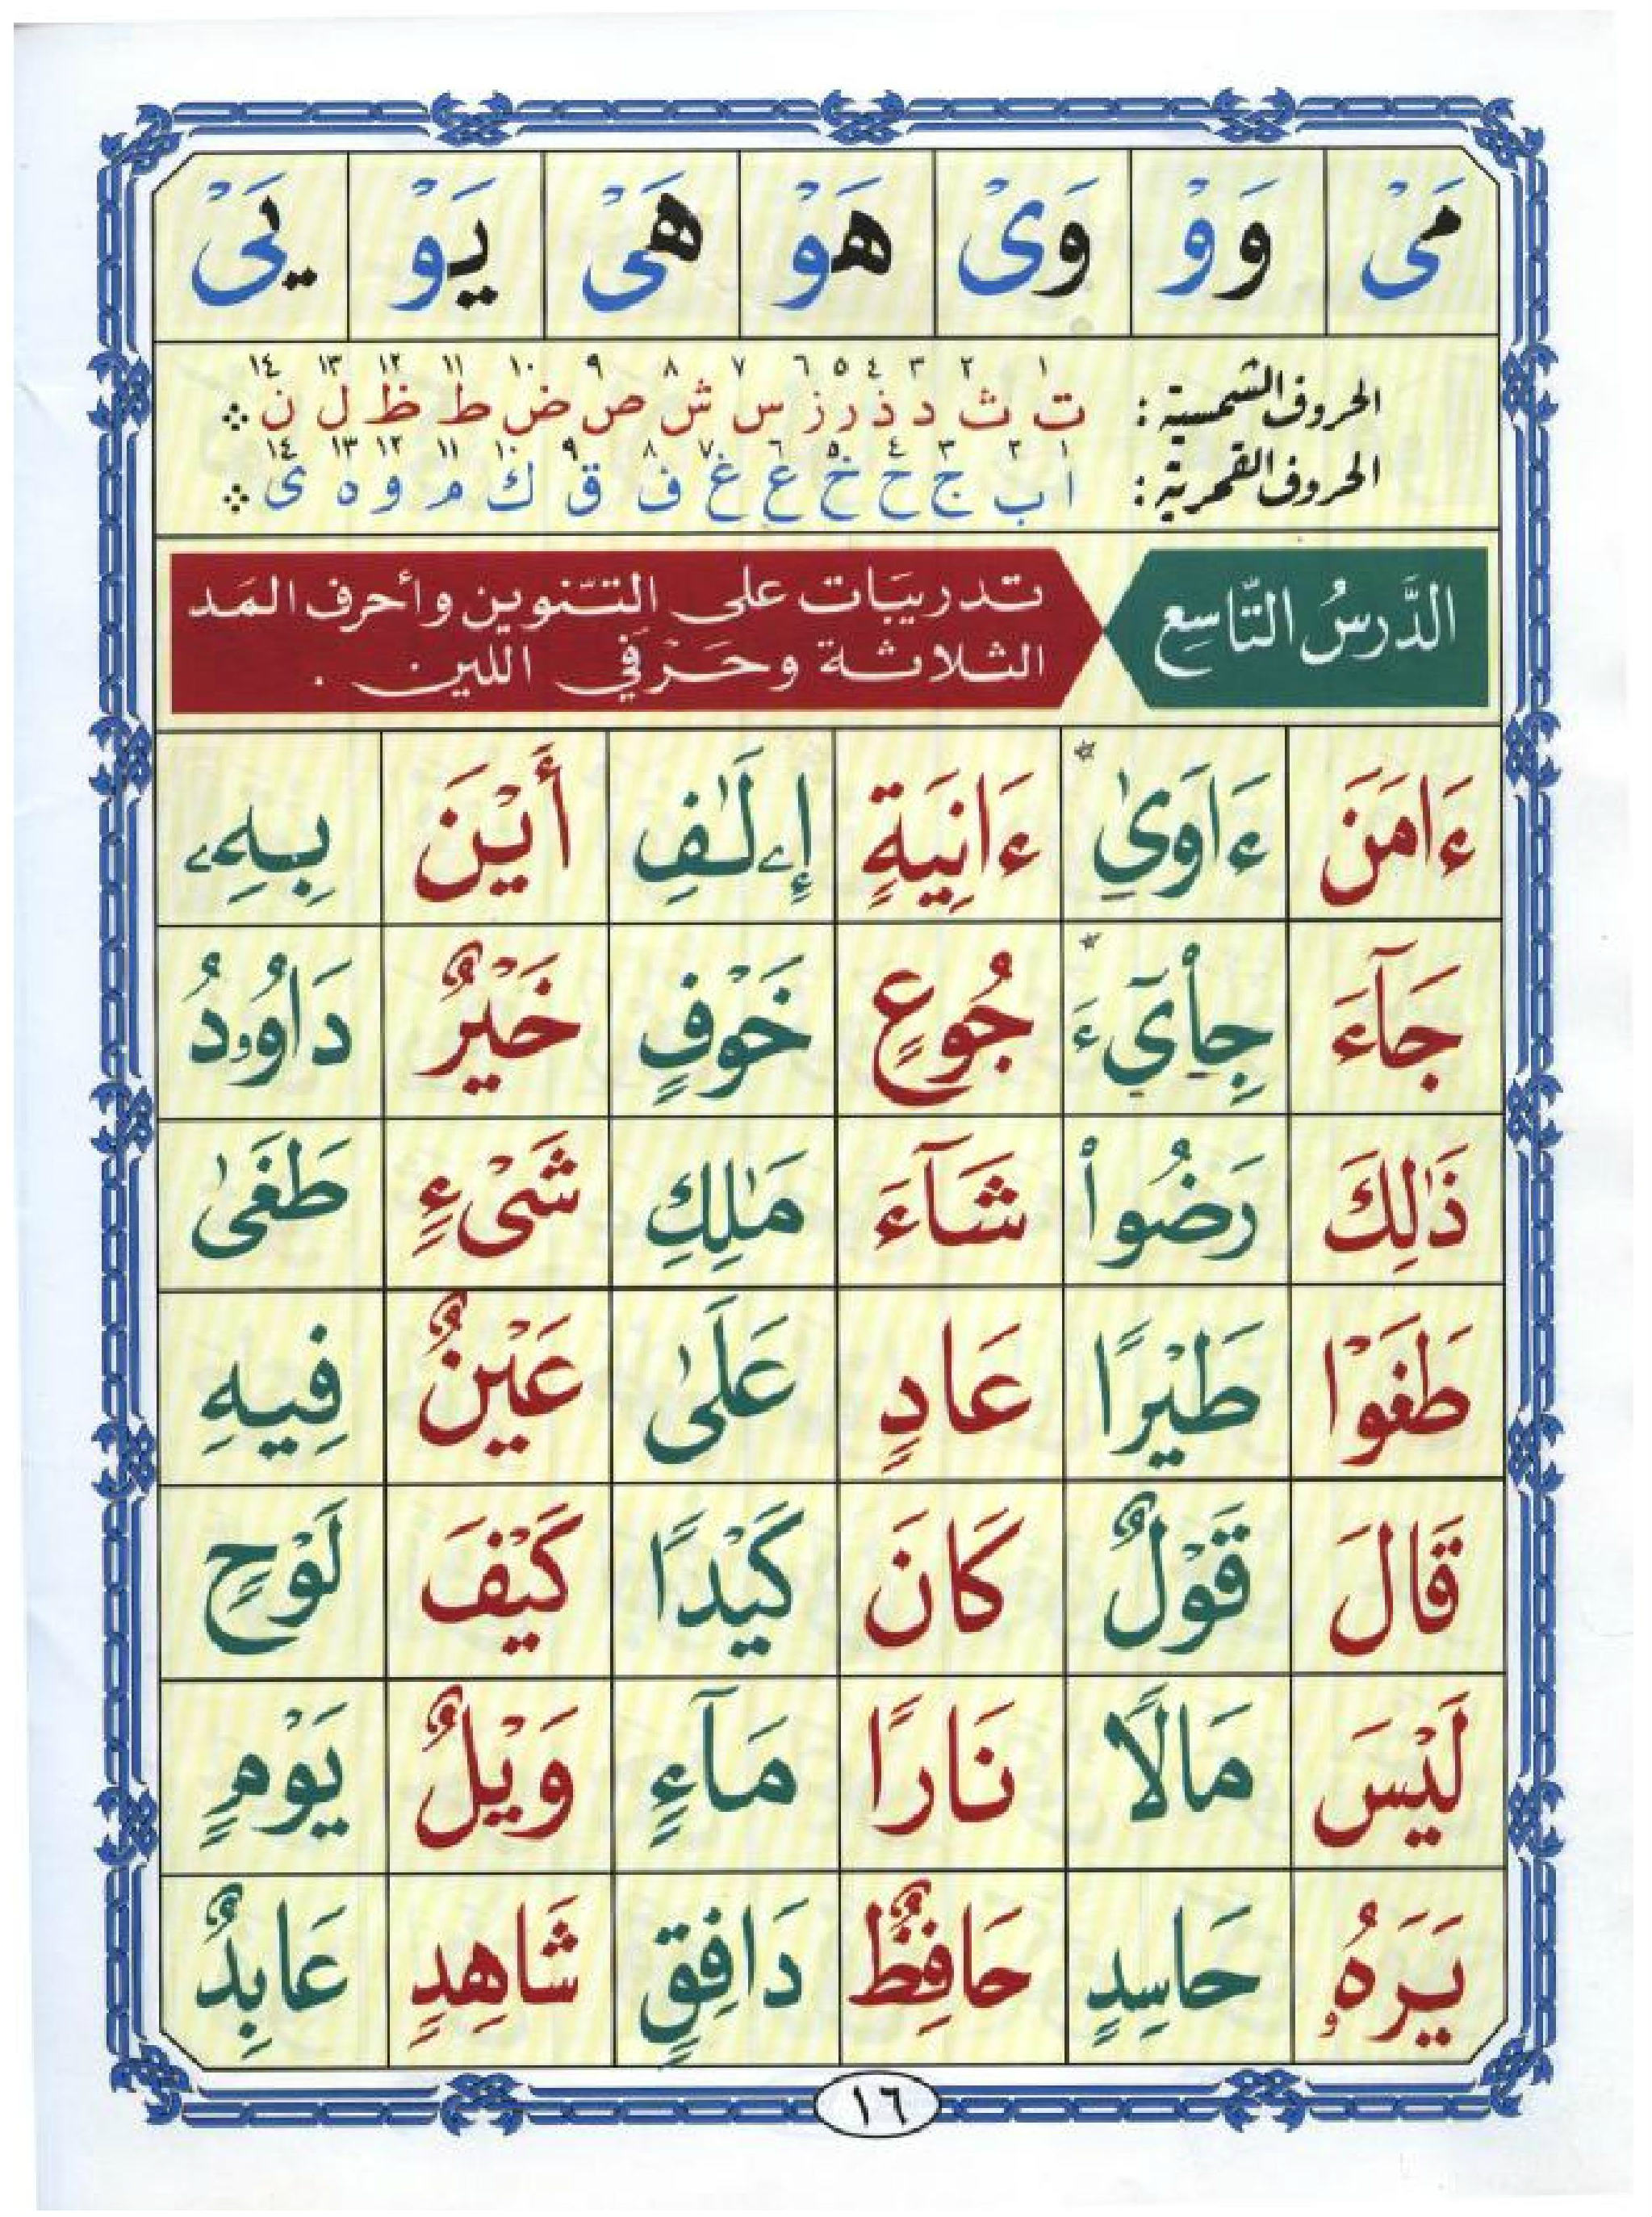 مَىْ وَوْ وَىْ هَوْ هَىْ يَوْ يَىْ
١ ٢ ٣ ٤ ٥ ٦ ٧ ٨ ٩ ١٠ ١١ ١٢ ١٣ ١٤
الحروف الشمسية : ت ث د ذ ر ز س ش ص ض ط ظ ل ن
١ ٢ ٣ ٤ ٥ ٦ ٧ ٨ ٩ ١٠ ١١ ١٢ ١٣ ١٤
الحروف القمرية : ا ب ج ح خ ع غ ف ق ك م و ه ى
الدَّرسُ التّاسِع
تدريبَات على التّنوين وأحرف المَد
الثلاثة وحَرْفي اللين .
ءَامَنَ ءَاوَىٰ ءَانِيَةٍ إِۦلَٰفِ أَيْنَ بِهِۦ
جَآءَ جِاْىٓءَ جُوعٍ خَوْفٍ خَيْرٌ دَاوُۥدُ
ذَٰلِكَ رَضُوا۟ شَآءَ مَٰلِكِ شَىْءٍ طَغَىٰ
طَغَوْا طَيْرًا عَادٍ عَلَىٰ عَيْنٌ فِيهِ
قَالَ قَوْلٌ كَانَ كَيْدًا كَيْفَ لَوْحٍ
لَيْسَ مَالًا نَارًا مَآءٍ وَيْلٌ يَوْمٍ
يَرَهُۥ حَاسِدٍ حَافِظٌ دَافِقٍ شَاهِدٍ عَابِدٌ
١٦